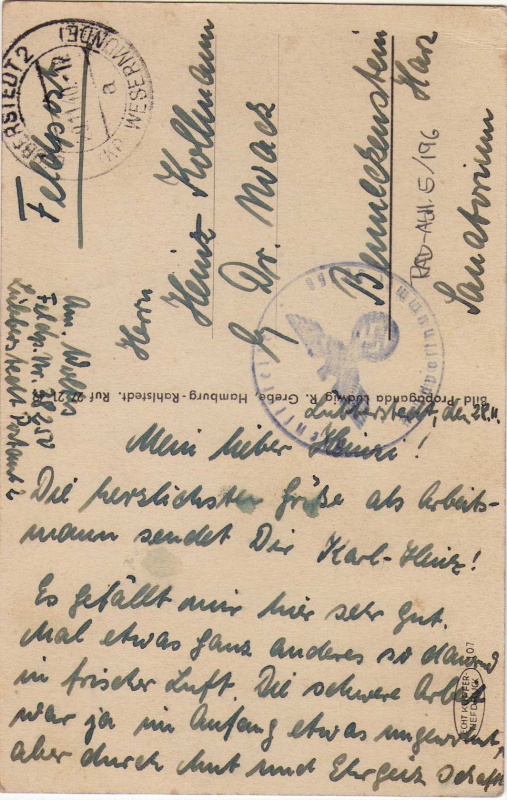 Feldpost
Herrn
Heinz Kollmann
b/ Dr. Noack
Benneckenstein
Harz
Sanatorium
RAD-Abt. 5/196
Feldp. Nr.
Lübberstedt Postamt 2
Bild-Propaganda Ludwig R. Grebe, Hamburg-Rahlstedt. Ruf 27 21
Lübberstedt, den 28.11.
Mein lieber Heinz!
Die herzlichsten Grüße als Arbeits-
mann sendet Dir Karl-Heinz!
Es gefällt mir hier sehr gut.
Mal etwas ganz anderes so dauernd
in frischer Luft. Die schwere Arbeit
war ja im Anfang etwas ungewohnt,
aber durch Mut und Ehrgeiz
ECHT KUPFER-
TIEFDRUCK
107